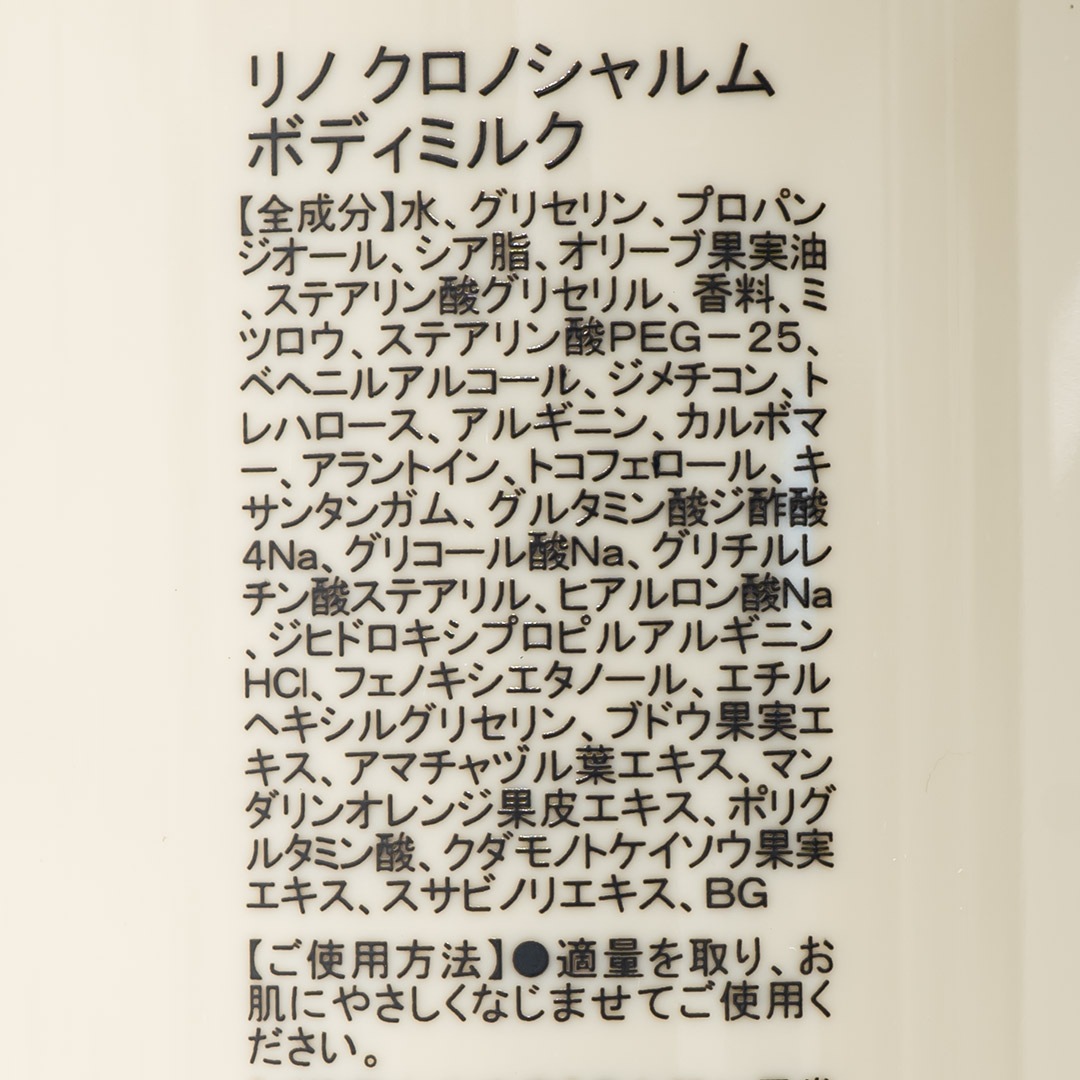 リノ クロノシャルム
ボディミルク
【全成分】水、グリセリン、プロパン
ジオール、シア脂、オリーブ果実油
、ステアリン酸グリセリル、香料、ミ
ツロウ、ステアリン酸PEG－25、
ベヘニルアルコール、ジメチコン、ト
レハロース、アルギニン、カルボマ
ー、アラントイン、トコフェロール、キ
サンタンガム、グルタミン酸ジ酢酸
4Na、グリコール酸Na、グリチルレ
チン酸ステアリル、ヒアルロン酸Na
、ジヒドロキシプロピルアルギニン
HCl、フェノキシエタノール、エチル
ヘキシルグリセリン、ブドウ果実エ
キス、アマチャヅル葉エキス、マン
ダリンオレンジ果皮エキス、ポリグ
ルタミン酸、クダモノトケイソウ果実
エキス、スサビノリエキス、BG
【ご使用方法】●適量を取り、お
肌にやさしくなじませてご使用く
ださい。